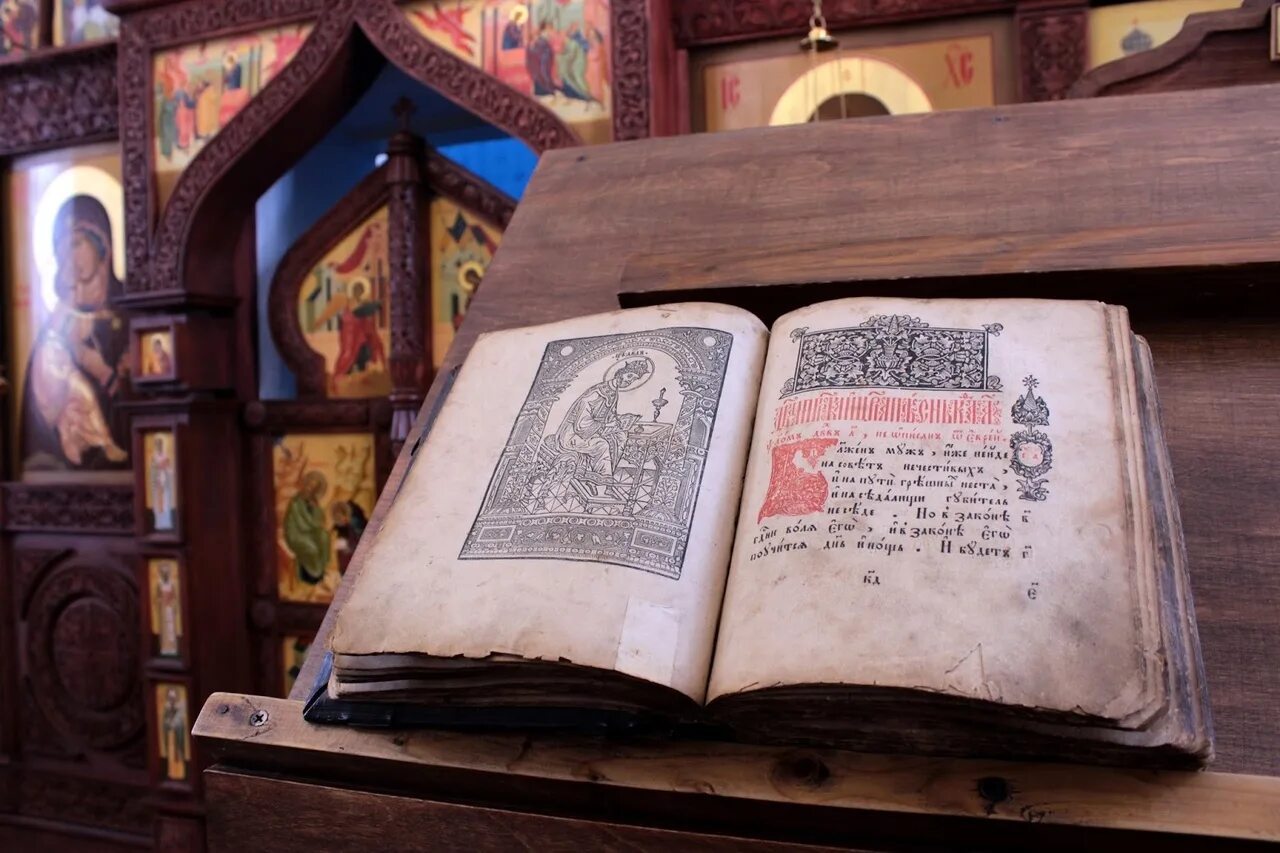 ІС ХС
ѱаломъ дв҃дъ а҃, не ѡписанъ ѿ еврей
Блаженъ мужъ, иже не иде
на совѣтъ нечестивыхъ,
и на пути грѣшныхъ не ста,
и на сѣдалищи губитель
не сѣде. Но в законѣ в҃
гд҃ни воля єгѡ̀, и в законѣ єгѡ̀
поучится дн҃ь и нощь. И будетъ г҃
к҃д
є҃